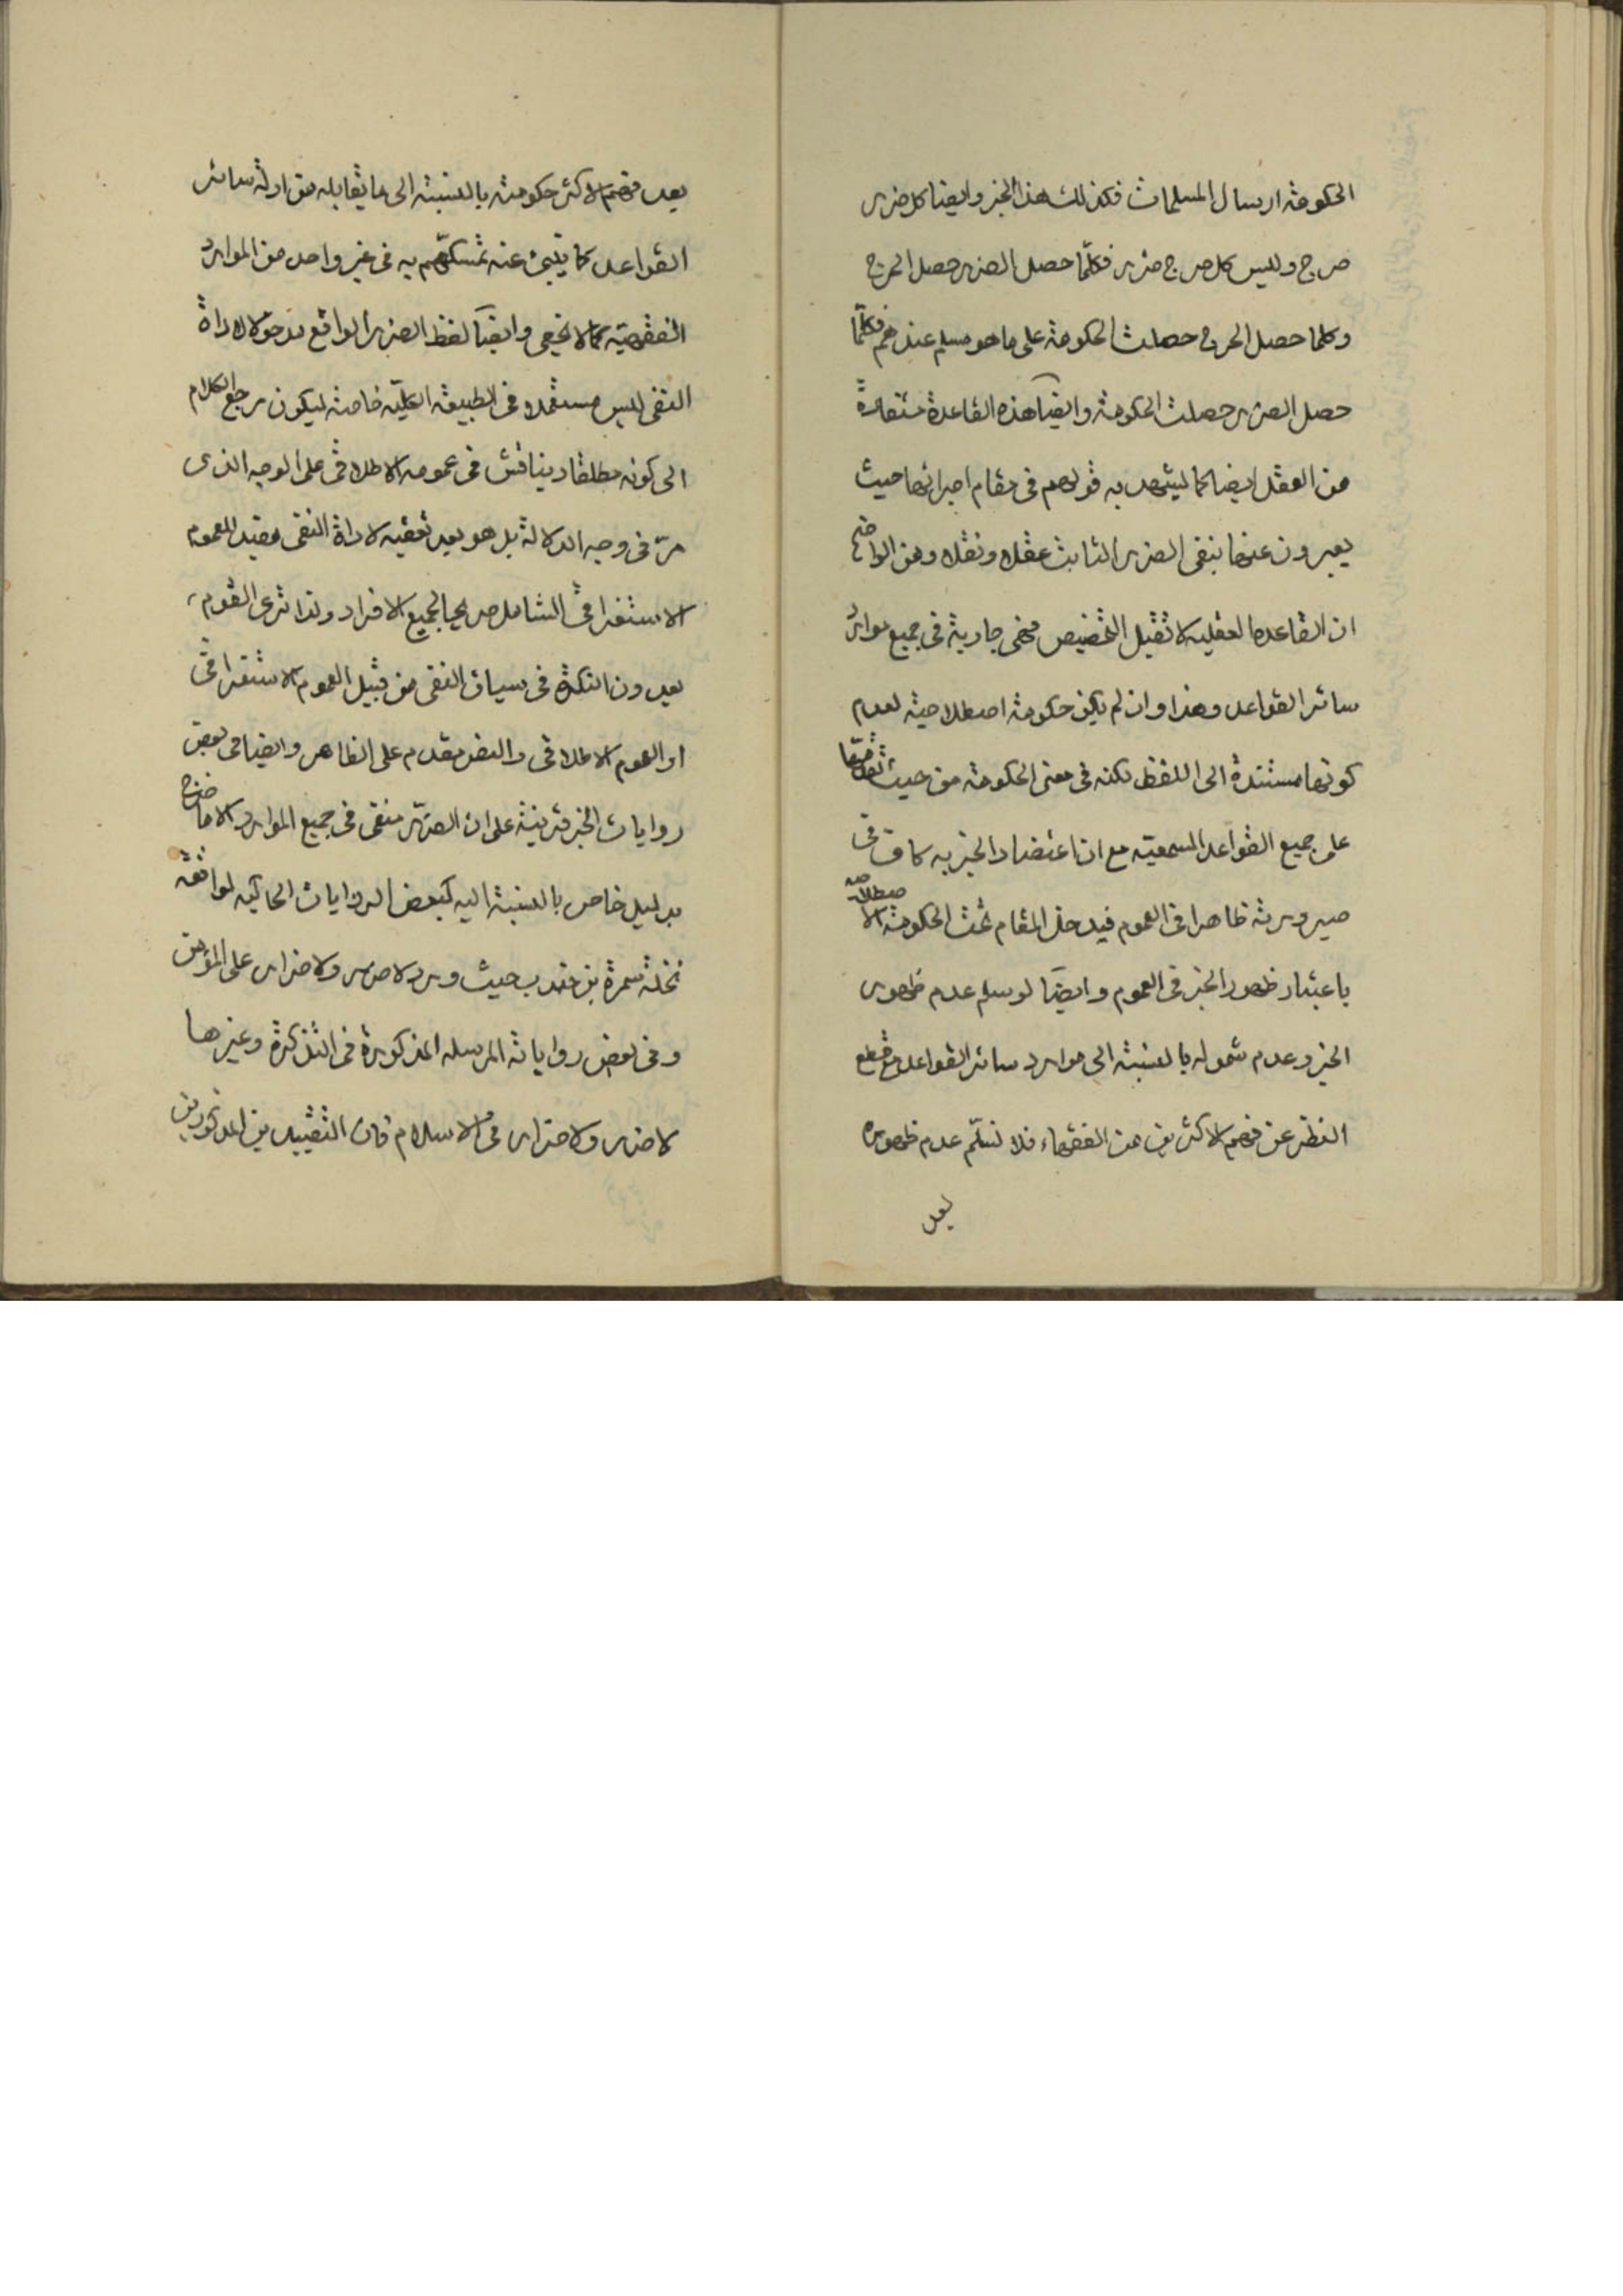 الحكومة ارسال المسلمات فكذلك هذا الخبر وايضا كل ضرر
حرج وليس كل حرج ضرر فكلّما حصل الضرر حصل الحرج
وكلما حصل الحرج حصلت الحكومة على ما هو مسلم عندهم فكلّما
حصل الضرر حصلت الحكومة وايضًا هذه القاعدة مستفادة
من العقل ايضا كما يشهد به قولهم في مقام اجرائها حيث
يعبرون عنها بنفى الضرر الثابت عقلا ونقلا ومن الواضح
ان القاعده العقليه لا تقبل التخصيص فهى جارية في جميع موارد
سائر القواعد وهذا وان لم يكن حكومة اصطلاحية لعدم
كونها مستندة الى اللفظ لكنه في معنى الحكومة من حيث تقدمها
على جميع القواعد السمعيّه مع ان اعتضاد الخبر به كاف في
صيرورته ظاهرا في العموم فيدخل المقام تحت الحكومة الاصطلاحيه
باعتبار ظهور الخبر في العموم وايضًا لو سلم عدم ظهور
الخبر وعدم شموله بالنسبة الى موارد سائر القواعد مع قطع
النظر عن فهم الاكثرين من الفقهاء فلا نسلّم عدم ظهوره
بعد
بعد فهم الاكثر حكومته بالنسبة الى ما يقابله من ادلة سائر
القواعد كما ينبئ عنه تمسكهم به في غير واحد من الموارد
الفقهيّه كما لا يخفى وايضًا لفظ الضرر الواقع مدخولا لاداة
النفى ليس مستعملا في الطبيعة الكليّه خاصة ليكون مرجع الكلام
الى كونه مطلقا ويناقش في عمومه الاطلاقى على الوجه الذى
مرّ في وجه الدلالة بل هو بعد تعقبه لاداة النفى مفيد للعموم
الاستغراقى الشامل صريحا لجميع الافراد ولذا ترى القوم
يعدون النكرة في سياق النفى من قبيل العموم الاستغراقى
او العموم الاطلاقى والنص مقدم على الظاهر وايضا في بعض
روايات الخبر قرينة على ان الضرر منفى في جميع الموارد الا ما خرج
بدليل خاص بالنسبة اليه كبعض الروايات الحاكيه لواقعة
نخلة سمرة بن جندب حيث ورد لا ضرر ولا ضرار على المؤمن
وفي بعض رواياته المرسله المذكورة في التذكرة وغيرها
لا ضرر ولا ضرار في الاسلام فان التقييدين المذكورين